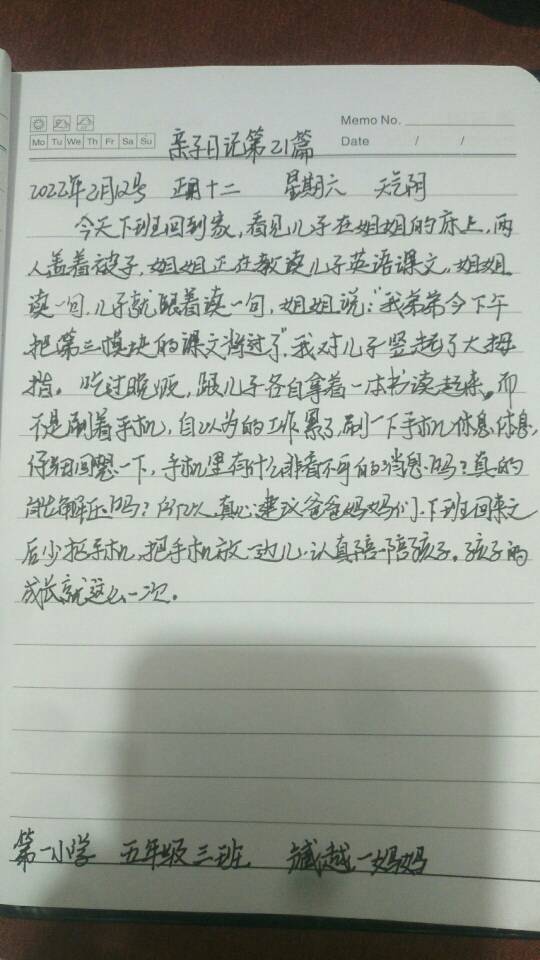 Memo No.
Mo Tu We Th Fr Sa Su
Date / /
亲子日记第21篇
2022年2月12号 正月十二 星期六 天气阴
今天下班回到家,看见儿子在姐姐的床上,两
人盖着被子,姐姐正在教读儿子英语课文,姐姐
读一句,儿子就跟着读一句,姐姐说:"我弟弟今下午
把第三模块的课文背过了",我对儿子竖起了大拇
指。吃过晚饭,跟儿子各自拿着一本书读起来,而
不是刷着手机,自以为的工作累了,刷一下手机休息休息,
仔细回想一下,手机里有什么非看不可的消息吗?真的
能解压吗?所以真心建议爸爸妈妈们,下班回来之
后少玩手机,把手机放一边儿,认真陪一陪孩子。孩子的
成长就这么一次。
第一小学 五年级三班 越一妈妈